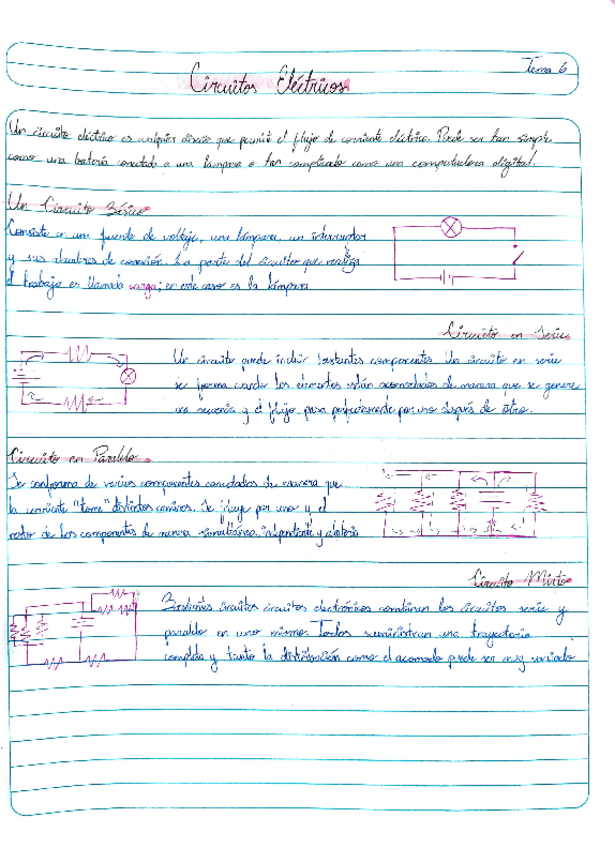 Tema 6
Circuitos Eléctricos
Un circuito eléctrico es cualquier diseño que permite el flujo de corriente eléctrica. Puede ser tan simple
como una batería conectada a una lámpara o tan complicado como una computadora digital.
Un Circuito Básico
Consiste en una fuente de voltaje, una lámpara, un interruptor
y sus alambres de conexión. La parte del circuito que realiza
el trabajo es llamada carga; en este caso es la lámpara
Circuito en Serie
Un circuito puede incluir bastantes componentes. Un circuito en serie
se forma cuando los elementos están acomodados de manera que se genere
una secuencia y el flujo pasa por uno después de otro.
Circuito en Paralelo
Se conforma de varios componentes conectados de manera que
la corriente "tome" distintos caminos. Se fluye por uno y el
resto de los componentes de manera simultánea, independiente y
Circuito Mixto
Bastantes circuitos circuitos electrónicos combinan los circuitos serie y
paralelo en uno mismo. Todos suministran una trayectoria
completa y tanto la distribución como el acomodo puede ser muy variado